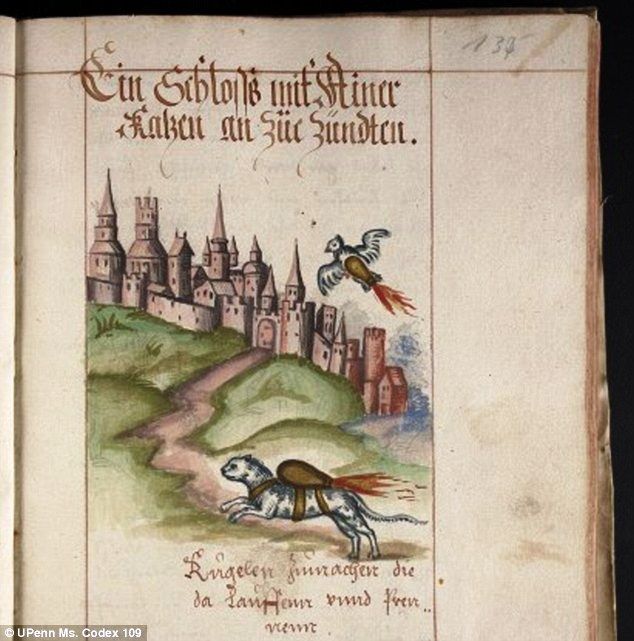 134
Ein Schloss mit Ainer
Katzen an Züe Zündten.
Kugelen Zumachen die
da Lauffenn vnnd Pren„
nenn.
© UPenn Ms. Codex 109